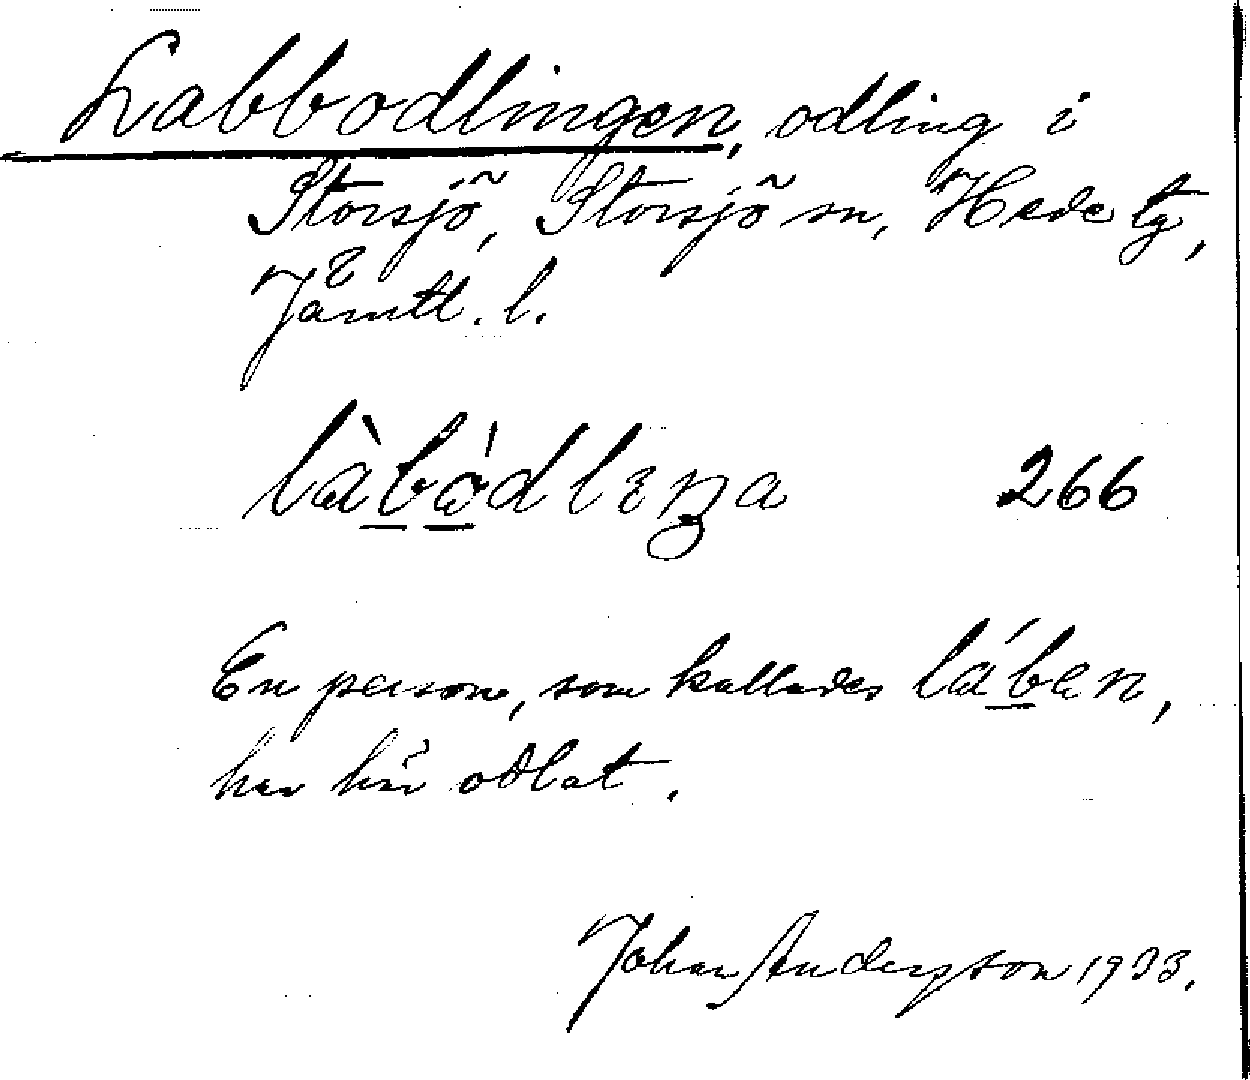 Labbodlingen, odling i
Storsjö, Storsjö sn, Hede tg,
Jämtl. l.
làbòdlɪŋa 266
En person, som kallades lában,
har här odlat.
Johan Anderson 1933.